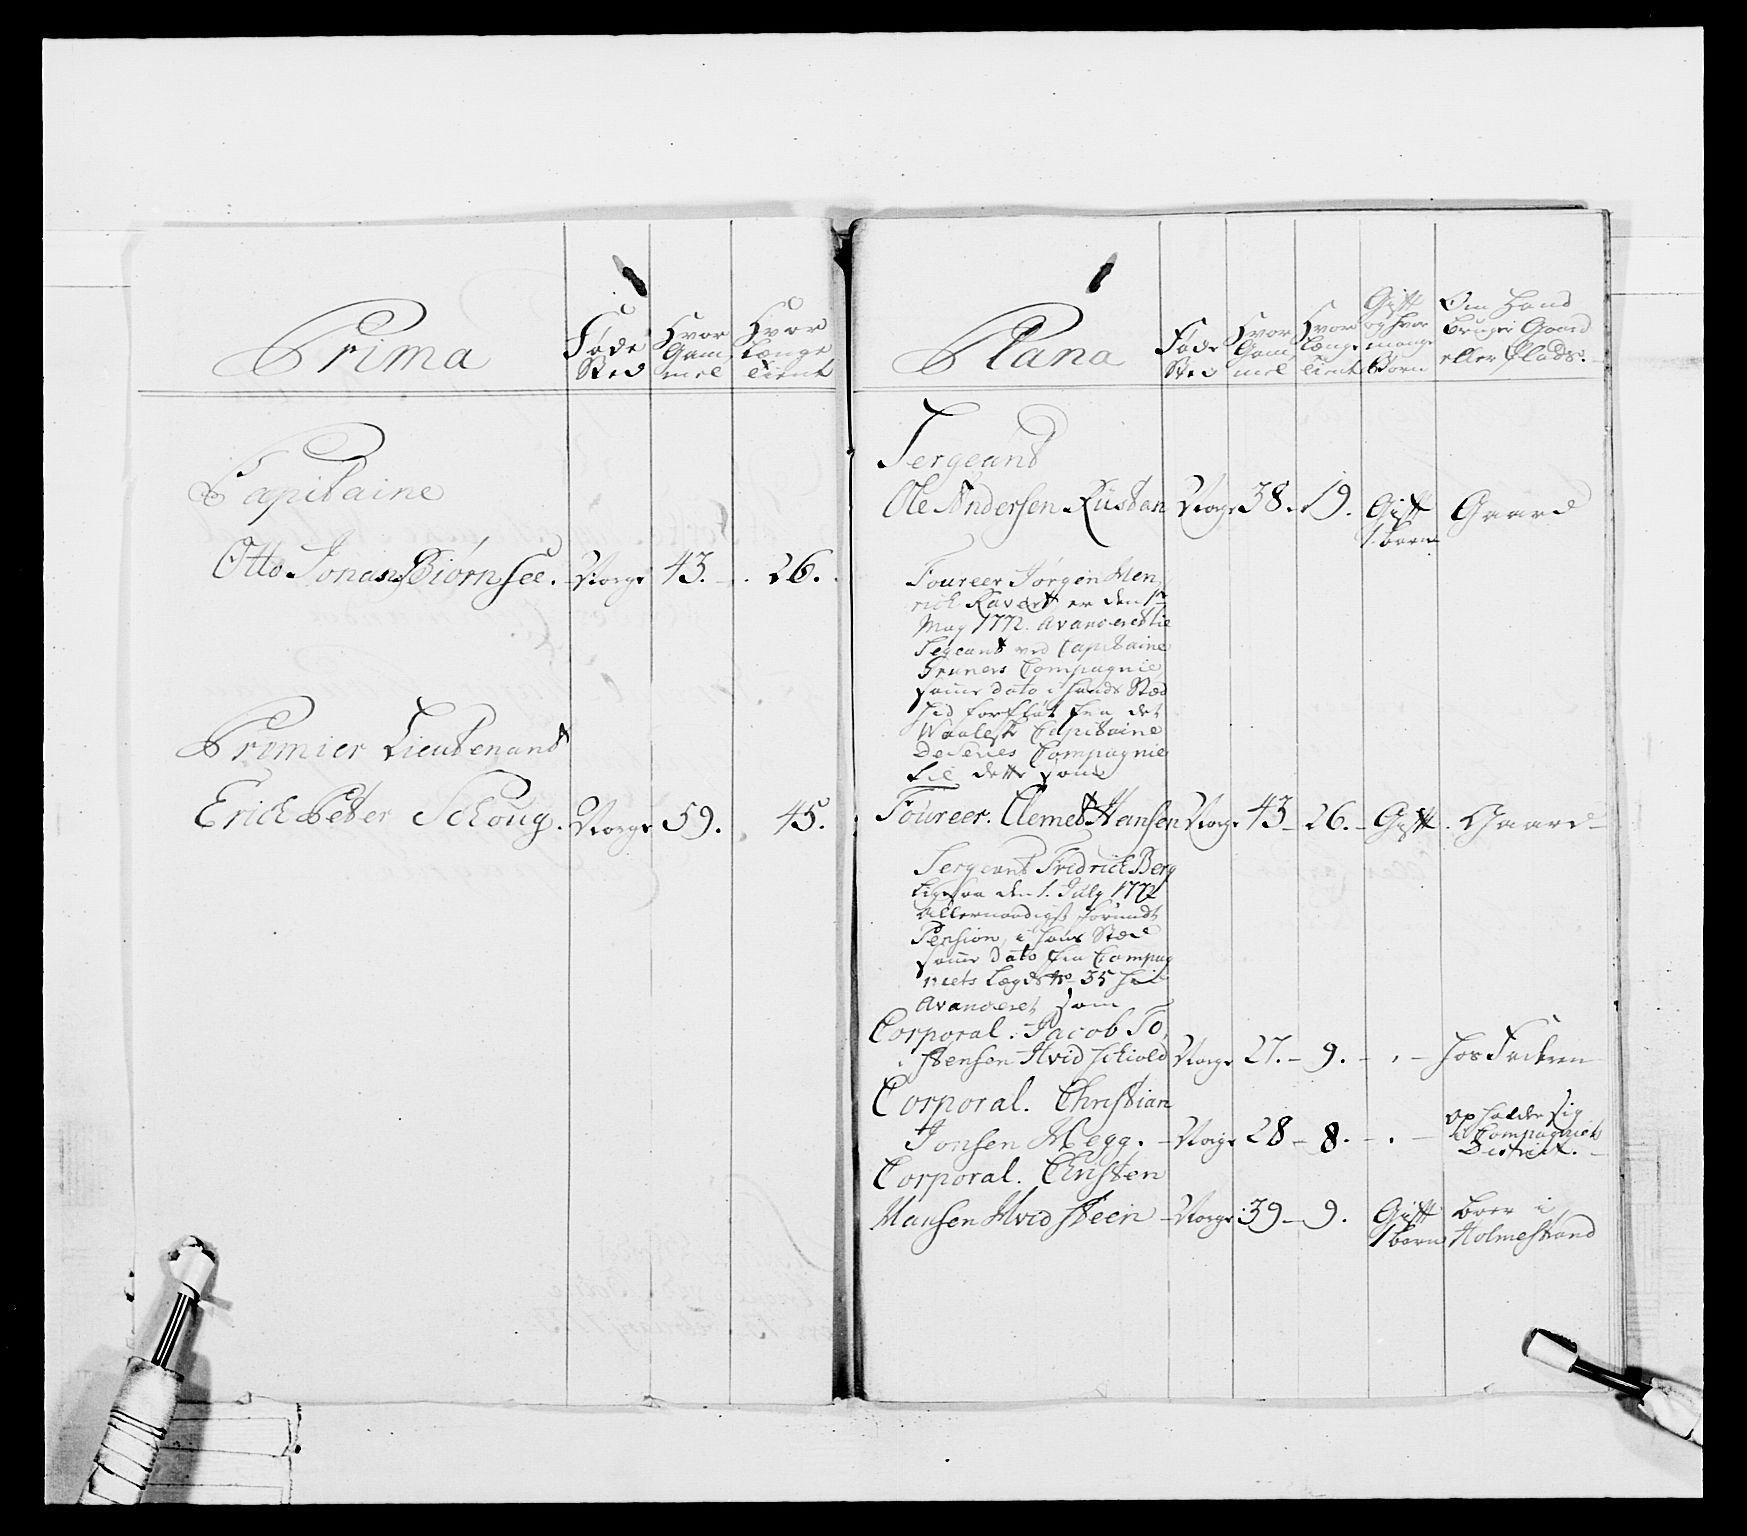 Prima
Føde Sted
Hvor Gam mel
Hvor Længe tient
Capitaine
Otto Jonas Biørnsee. Norge 43. 26.
Premier Lieutenant
Erick Peter Schoug. Norge 59. 45.
Plana
Føde Sted
Hvor Gam mel
Hvor Længe tient
Gift og hvor mange Børn
Om Hand bruger Gaard eller Plads.
Sergeant
Ole Andersen Rustan Norge 38. 19. Gift Gaard
1 barn
Foureer Jørgen Hen
rich er den 1te
May 1772. Avanceret til
Segeant ved Capitaine
Gruners Compagnie
samme dato i hands Stæd
hid forfløt fra det
Capitaine
Compagnie
til dette som
Foureer. Clemet Hansen Norge 43 - 26. - Gift. Gaard -
Sergeant Fredrich Berg
ligesaa den 1. July 1772
Allernaadigst forundt
Pension, i hans Stæd
samme Dato fra Compag
niets Lægd No 35 hid
Avanceret som
Corporal. Jacob To,
stensen Hvidschiold Norge 27. - 9. - . - hos Faderen
Corporal. Christian
Jonsen Hegg. - Norge 28 - 8. - . - opholder sig
i Compagniets
District.
Corporal. Christen
Hansen Hvidsteen - Norge 39 - 9. Gift boer i
1 barn Holmestrand